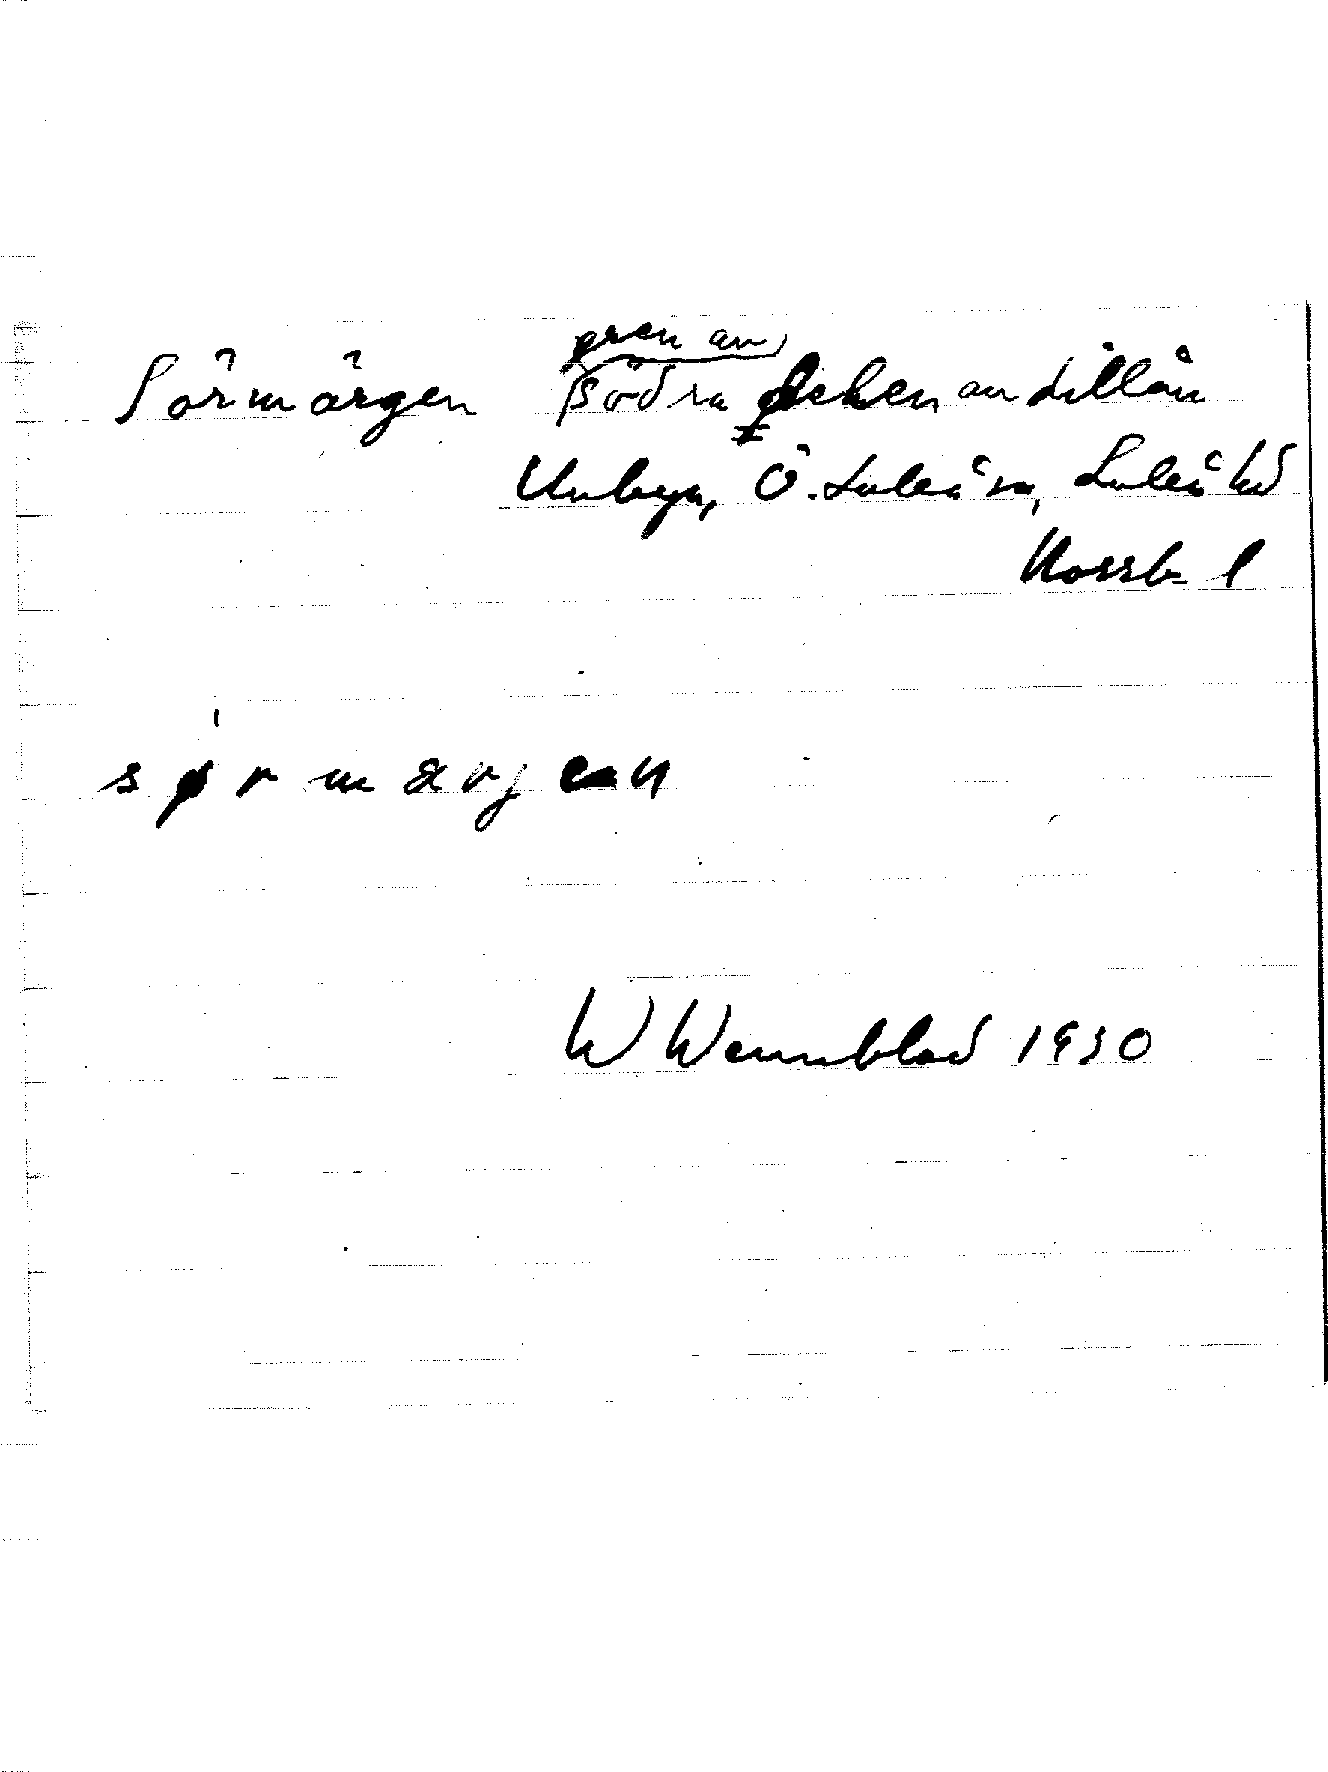 gren av
Sörmärgen södra av Lillån
Unbyn, Ö. Luleå sn, Luleå hd
Norrb l
sørmærjen
W Wennblad 1930